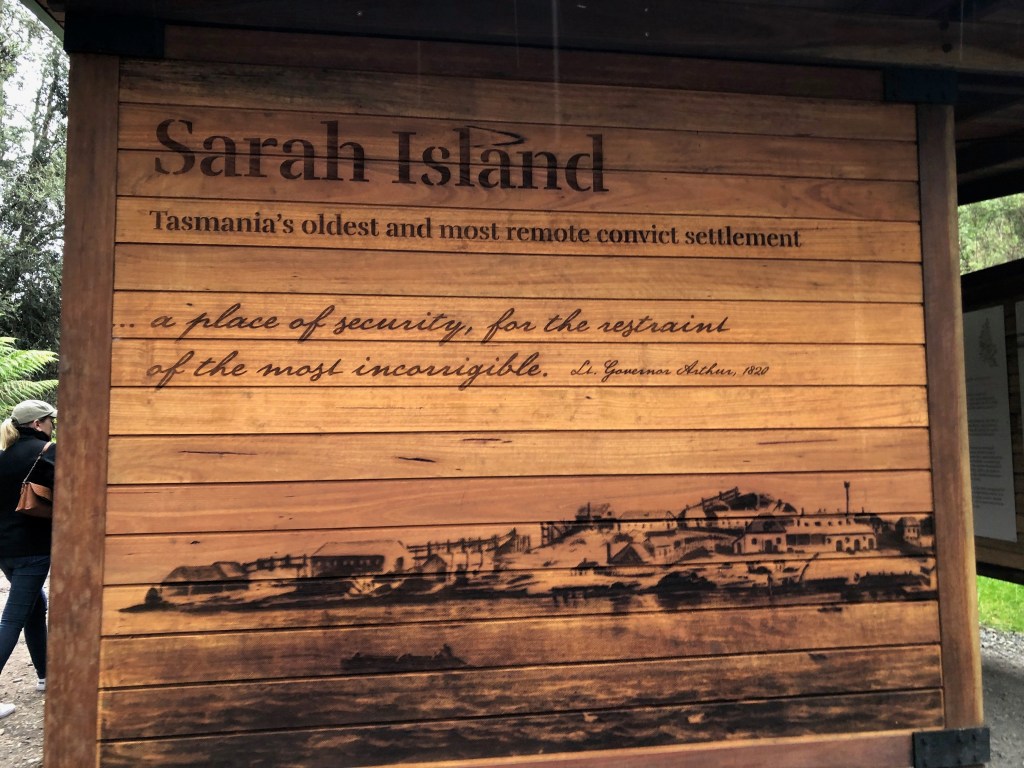 Sarah Island
Tasmania's oldest and most remote convict settlement
... a place of security, for the restraint
of the most incorrigible. Lt. Governor Arthur, 1820